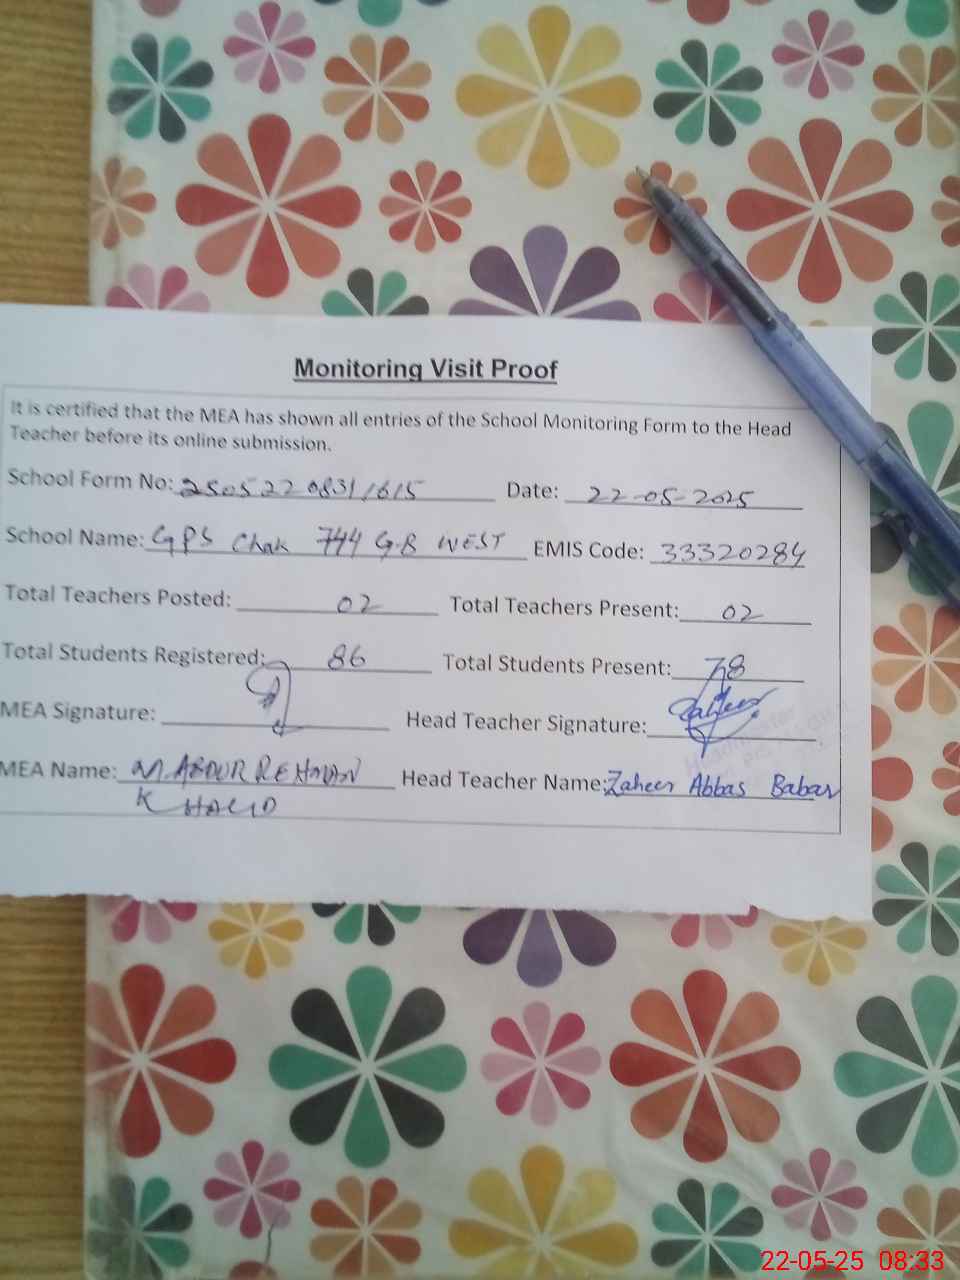 Monitoring Visit Proof
It is certified that the MEA has shown all entries of the School Monitoring Form to the Head
Teacher before its online submission.
School Form No: 25052208311615 Date: 22-05-2025
School Name: GPS Chak 744 G.B WEST EMIS Code: 33320284
Total Teachers Posted: 02 Total Teachers Present: 02
Total Students Registered: 86 Total Students Present: 78
MEA Signature: Head Teacher Signature: Zaheer
MEA Name: M. ABDUR REHMAN Head Teacher Name: Zaheer Abbas Babar
KHALID
Headmaster
22-05-25 08:33